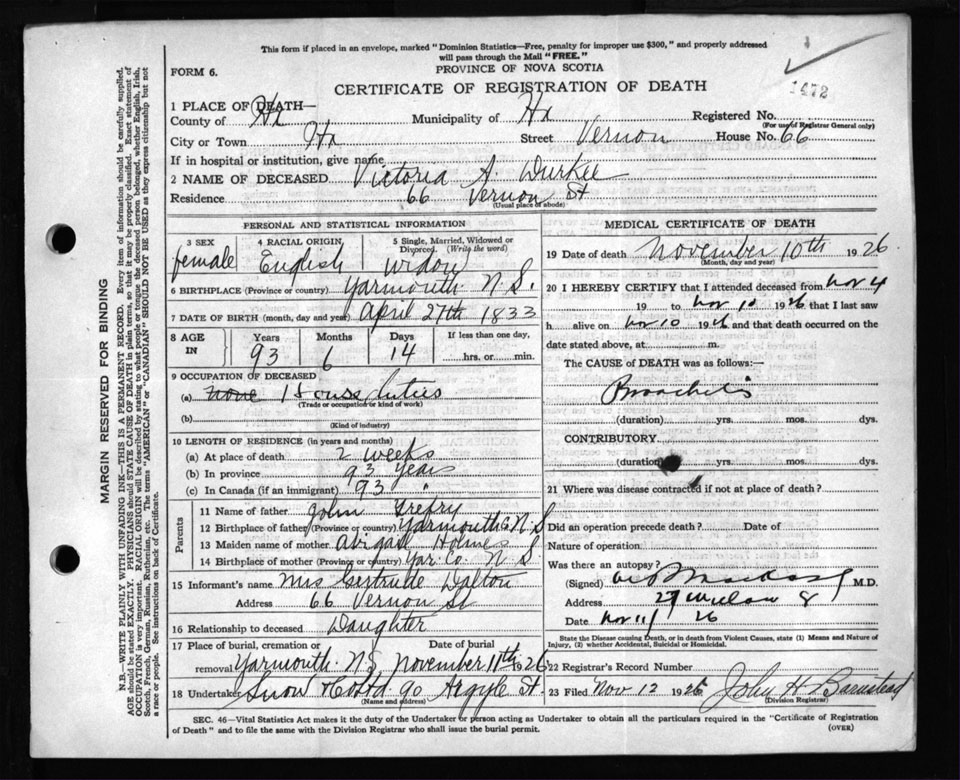 This form if placed in an envelope, marked "Dominion Statistics—Free, penalty for improper use $300," and properly addressed
will pass through the Mail "FREE."
PROVINCE OF NOVA SCOTIA
FORM 6.
CERTIFICATE OF REGISTRATION OF DEATH
1472
1 PLACE OF DEATH—
County of Hx Municipality of Hx Registered No.
(For use of Registrar General only)
City or Town Hx Street Vernon House No. 66
If in hospital or institution, give name
2 NAME OF DECEASED Victoria A. Durkee
Residence 66 Vernon St
(Usual place of abode)
PERSONAL AND STATISTICAL INFORMATION
3 SEX 4 RACIAL ORIGIN 5 Single, Married, Widowed or
Divorced. (Write the word)
female English widow
6 BIRTHPLACE (Province or country) Yarmouth N.S.
7 DATE OF BIRTH (month, day and year) April 27th 1833
8 AGE IN Years Months Days If less than one day,
93 6 14 hrs. or min.
9 OCCUPATION OF DECEASED
(a) none House duties
(Trade or occupation or kind of work)
(b)
(Kind of industry)
10 LENGTH OF RESIDENCE (in years and months)
(a) At place of death 2 weeks
(b) In province 93 years
(c) In Canada (if an immigrant) 93 "
Parents
11 Name of father John Trefry
12 Birthplace of father (Province or country) Yarmouth N S
13 Maiden name of mother Abigail Holmes
14 Birthplace of mother (Province or country) Yar. Co. N S
15 Informant's name Mrs Gertrude Dalton
Address 66 Vernon St
16 Relationship to deceased Daughter
17 Place of burial, cremation or Date of burial
removal Yarmouth N.S. November 11th 26
18 Undertaker Snow & Co Ltd 90 Argyle St.
(Name and address)
MEDICAL CERTIFICATE OF DEATH
19 Date of death November 10th 1926
(Month, day and year)
20 I HEREBY CERTIFY that I attended deceased from Nov 4
19 to Nov 10 1926 that I last saw
h alive on Nov 10 1926 and that death occurred on the
date stated above, at m.
The CAUSE OF DEATH was as follows:—
Bronchitis
(duration) yrs. mos. dys.
CONTRIBUTORY
(duration) yrs. mos. dys.
21 Where was disease contracted if not at place of death?
Did an operation precede death? Date of
Nature of operation
Was there an autopsy?
(Signed) M.D.
Address 27 Willow S
Date Nov 11/26
State the Disease causing Death, or in death from Violent Causes, state (1) Means and Nature of
Injury, (2) whether Accidental, Suicidal or Homicidal.
22 Registrar's Record Number
23 Filed Nov 12 1926 John H Barnstead
(Division Registrar)
SEC. 46—Vital Statistics Act makes it the duty of the Undertaker or person acting as Undertaker to obtain all the particulars required in the "Certificate of Registration
of Death" and to file the same with the Division Registrar who shall issue the burial permit.
(OVER)
MARGIN RESERVED FOR BINDING
N.B.—WRITE PLAINLY WITH UNFADING INK—THIS IS A PERMANENT RECORD. Every item of information should be carefully supplied.
AGE should be stated EXACTLY. PHYSICIANS should STATE CAUSE OF DEATH in plain terms, so that it may be properly classified. Exact statement of
OCCUPATION is very important. RACIAL ORIGIN will be described by stating to what people or tongue the deceased person belonged, whether English, Irish,
Scotch, French, German, Russian, Ruthenian, etc. The terms "AMERICAN" or "CANADIAN" SHOULD NOT BE USED as they express citizenship but not
a race or people. See instructions on back of Certificate.